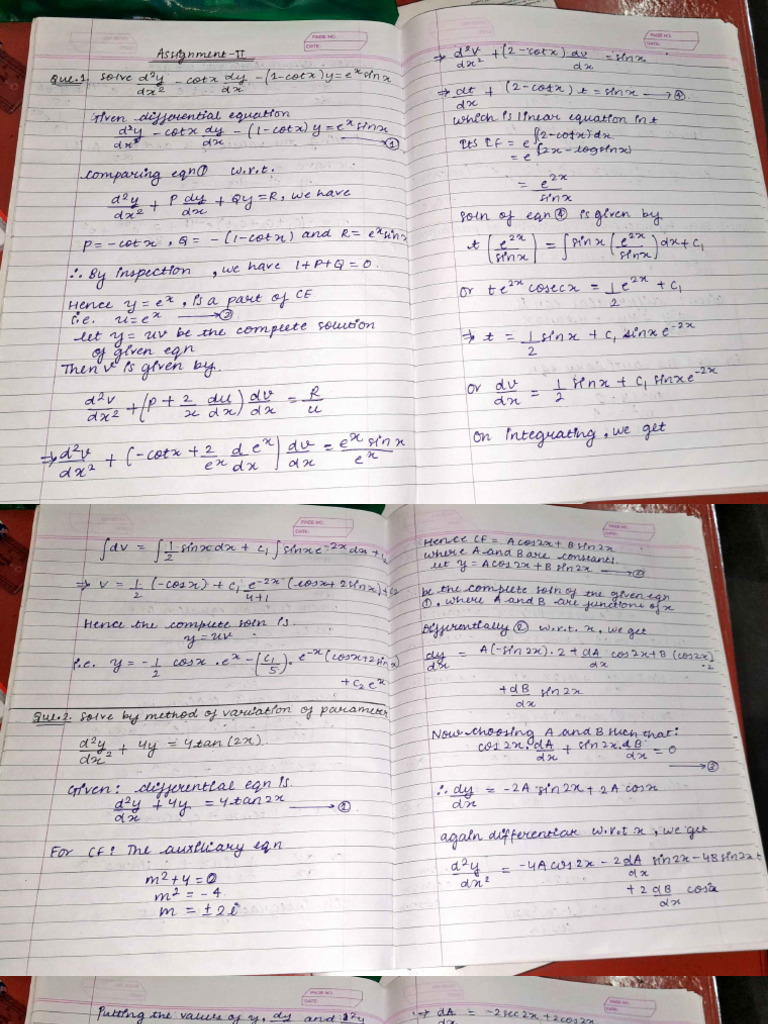 PAGE NO.
DATE:
Assignment-II
Que.1. Solve d²y/dx² - cotx dy/dx - (1-cotx)y = eˣsinx
Given differential equation
d²y/dx² - cotx dy/dx - (1-cotx)y = eˣsinx —①
Comparing eqn① w.r.t.
d²y/dx² + P dy/dx + Qy = R, we have
P = -cotx, Q = -(1-cotx) and R = eˣsinx
∴ By inspection, we have 1+P+Q = 0.
Hence y = eˣ, is a part of CF
i.e. u = eˣ —②
let y = uv be the complete solution
of given eqn
Then v is given by.
d²v/dx² + (P + 2/x du/dx) dv/dx = R/u
⇒ d²v/dx² + (-cotx + 2/eˣ d/dx eˣ) dv/dx = eˣ sinx/eˣ
PAGE NO.
DATE:
⇒ d²v/dx² + (2-cotx) dv/dx = sinx
⇒ dt/dx + (2-cotx) t = sinx —④
which is linear equation in t
Its CF = e^∫(2-cotx)dx
= e^∫(2x-logsinx)
= e²ˣ/sinx
Soln of eqn ④ is given by
t(e²ˣ/sinx) = ∫sinx (e²ˣ/sinx) dx + C₁
or te²ˣ cosecx = 1/2 e²ˣ + C₁
⇒ t = 1/2 sinx + C₁ sinxe⁻²ˣ
or dv/dx = 1/2 sinx + C₁ sinxe⁻²ˣ
On integrating, we get
PAGE NO.
DATE:
∫dv = ∫1/2 sinx dx + C₁ ∫sinxe⁻²ˣdx +
⇒ v = 1/2 (-cosx) + C₁ e⁻²ˣ/4+1 (cosx+2sinx) + C₂
Hence the complete soln is.
y = uv
i.e. y = -1/2 cosx . eˣ - (C₁/5) . e⁻ˣ(cosx+2sinx)
+ C₂eˣ
Que.2. Solve by method of variation of parameter
d²y/dx² + 4y = 4tan(2x).
Given: differential eqn is.
d²y/dx + 4y = 4tan2x —①
For CF: The auxiliary eqn
m²+4 = 0
m² = -4
m = ±2i
PAGE NO.
DATE:
Hence CF = Acos2x + Bsin2x
where A and B are constants.
let y = Acos2x + Bsin2x —②
be the complete soln of the given eqn
①, where A and B are functions of x
Differentially ② w.r.t. x, we get
dy/dx = A(-sin2x).2 + dA/dx cos2x + B(cos2x).2
+ dB/dx sin2x
Now choosing A and B such that:
cos2x.dA/dx + sin2x.dB/dx = 0
—③
∴ dy/dx = -2A sin2x + 2A cosx
again differential w.r.t x, we get
d²y/dx² = -4Acos2x - 2dA/dx sin2x - 4Bsin2x +
+ 2 dB/dx
PAGE NO.
DATE:
Putting the values of y, dy and d²y
PAGE NO.
DATE:
⇒ dA/dx = -2sec2x + 2cos2x